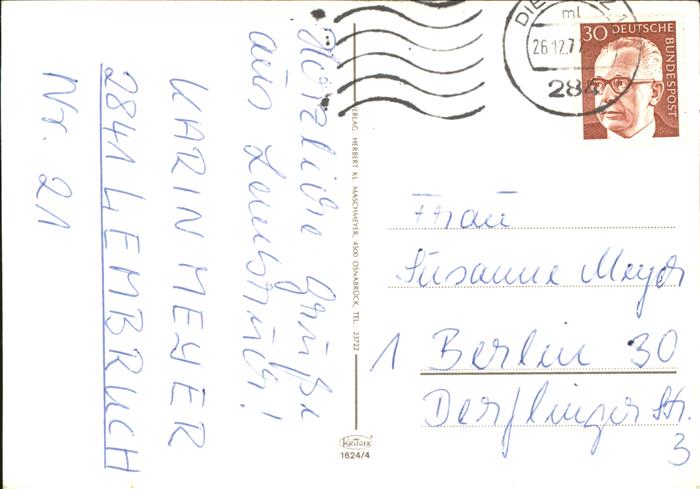 Herzliche Grüße
aus Lembruch!
KARIN MEYER
2841 LEMBRUCH
Nr. 21
VERLAG: HERBERT KL. MASCHMEYER, 4500 OSNABRÜCK, TEL.: 23722
KRÜGER
1624/4
ml
26.12.7
284
30 DEUTSCHE
BUNDESPOST
Frau
Susanne Meyer
1 Berlin 30
Derflinger Str.
3